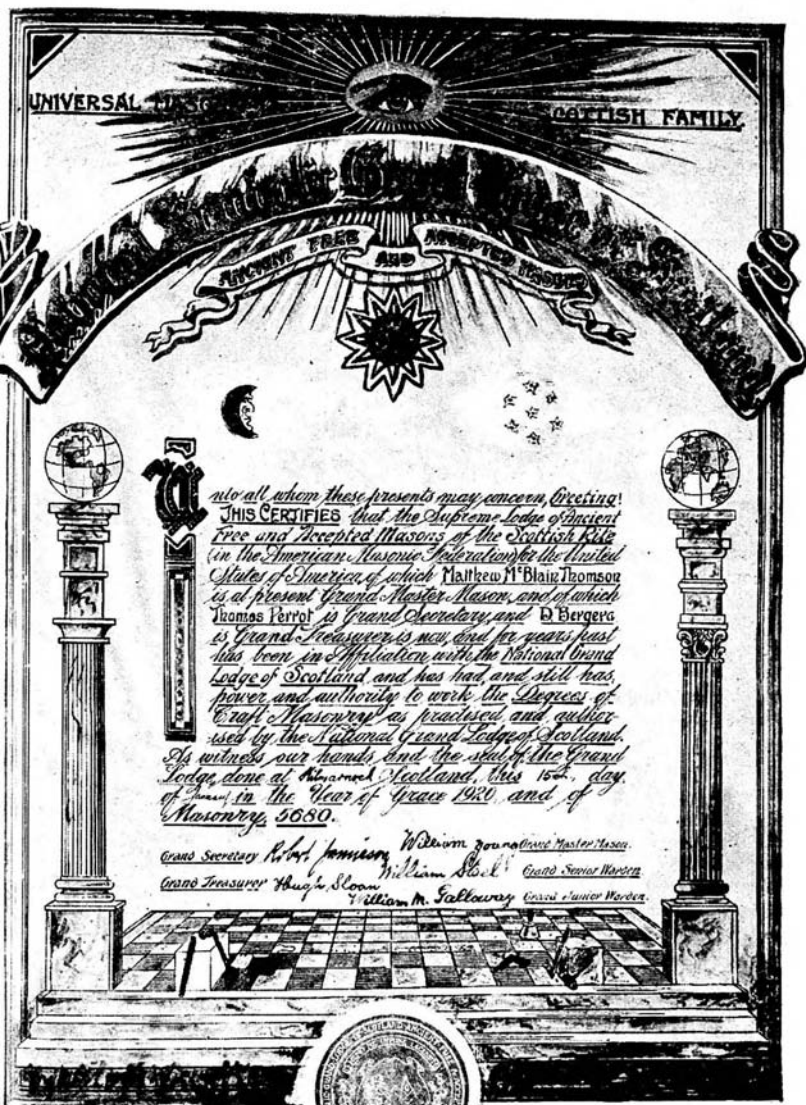 UNIVERSAL
SCOTTISH FAMILY.
Grand
ANCIENT FREE AND ACCEPTED MASONS
Unto all whom these presents may concern, Greeting!
THIS CERTIFIES that the Supreme Lodge of Ancient
Free and Accepted Masons of the Scottish Rite
(in the American Masonic Federation for the United
States of America, of which Matthew McBlain Thomson
is at present Grand Master Mason, and of which
Thomas Perrot is Grand Secretary, and D. Bergera
is Grand Treasurer, is now, and for years past
has been in Affiliation with the National Grand
Lodge of Scotland and has had, and still has,
power and authority to work the Degrees of
Craft Masonry as practised and author-
ised by the National Grand Lodge of Scotland.
As witness our hands and the seal of the Grand
Lodge, done at Kilmarnock Scotland, this 15th, day
of in the Year of Grace 1920, and of
Masonry, 5680.
Grand Secretary Robert Jamieson William Young Grand Master Mason.
William Steel Grand Senior Warden.
Grand Treasurer Hugh Sloan
William M. Galloway Grand Junior Warden.